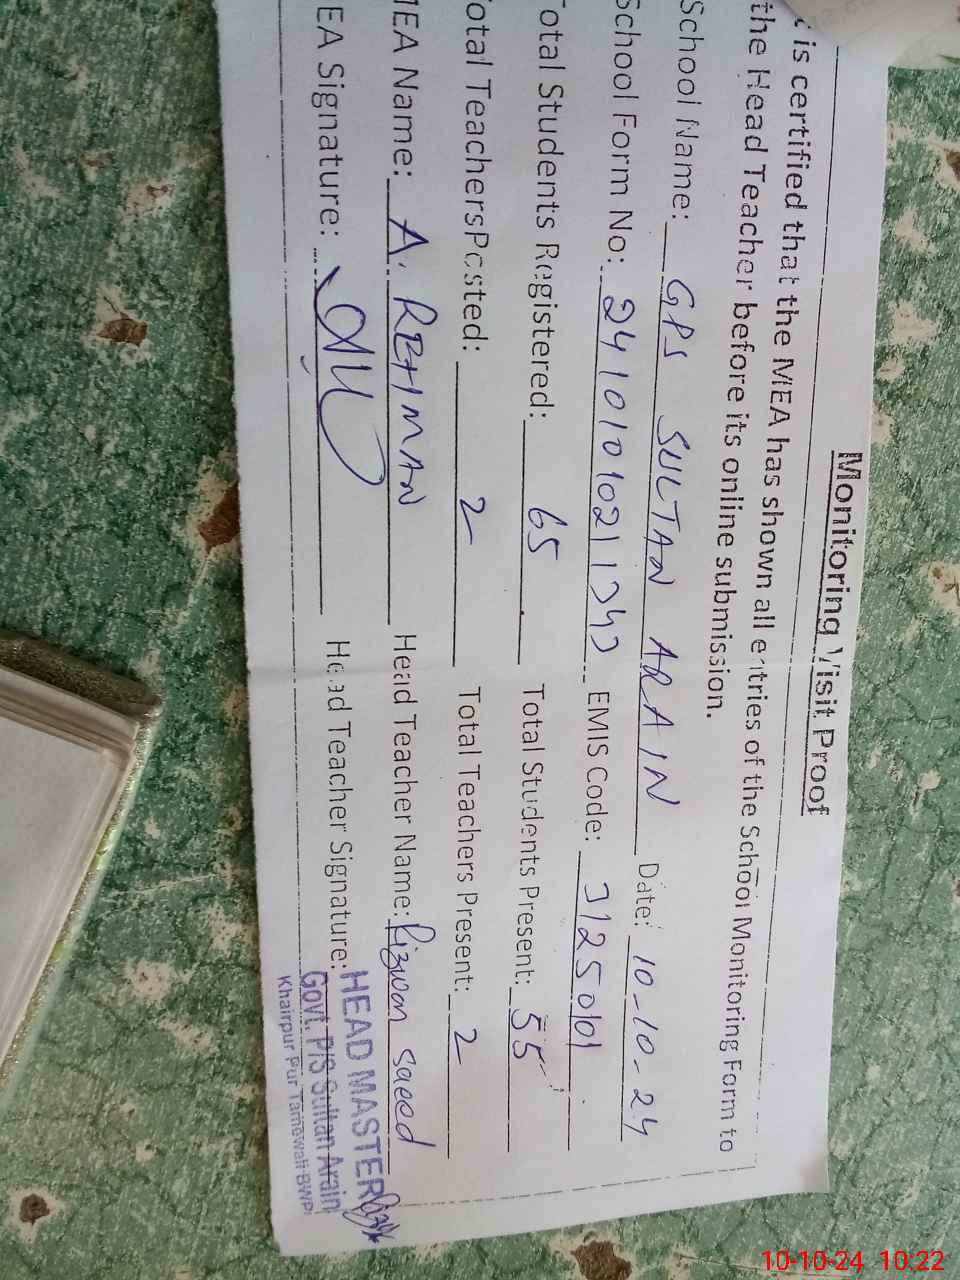 Monitoring Visit Proof
is certified that the MEA has shown all entries of the School Monitoring Form to
the Head Teacher before its online submission.
School Name: GPS SULTAN ARAIN Date: 10-10-24
School Form No: EMIS Code: 31250101
Total Students Registered: 65 Total Students Present: 55
Total Teachers Posted: 2 Total Teachers Present: 2
MEA Name: A. REHMAN Head Teacher Name: Rizwan saeed
EA Signature: Head Teacher Signature:
HEAD MASTER
Govt. P/S Sultan Arain
Khairpur Tamewali BWP
10-10-24 10:22